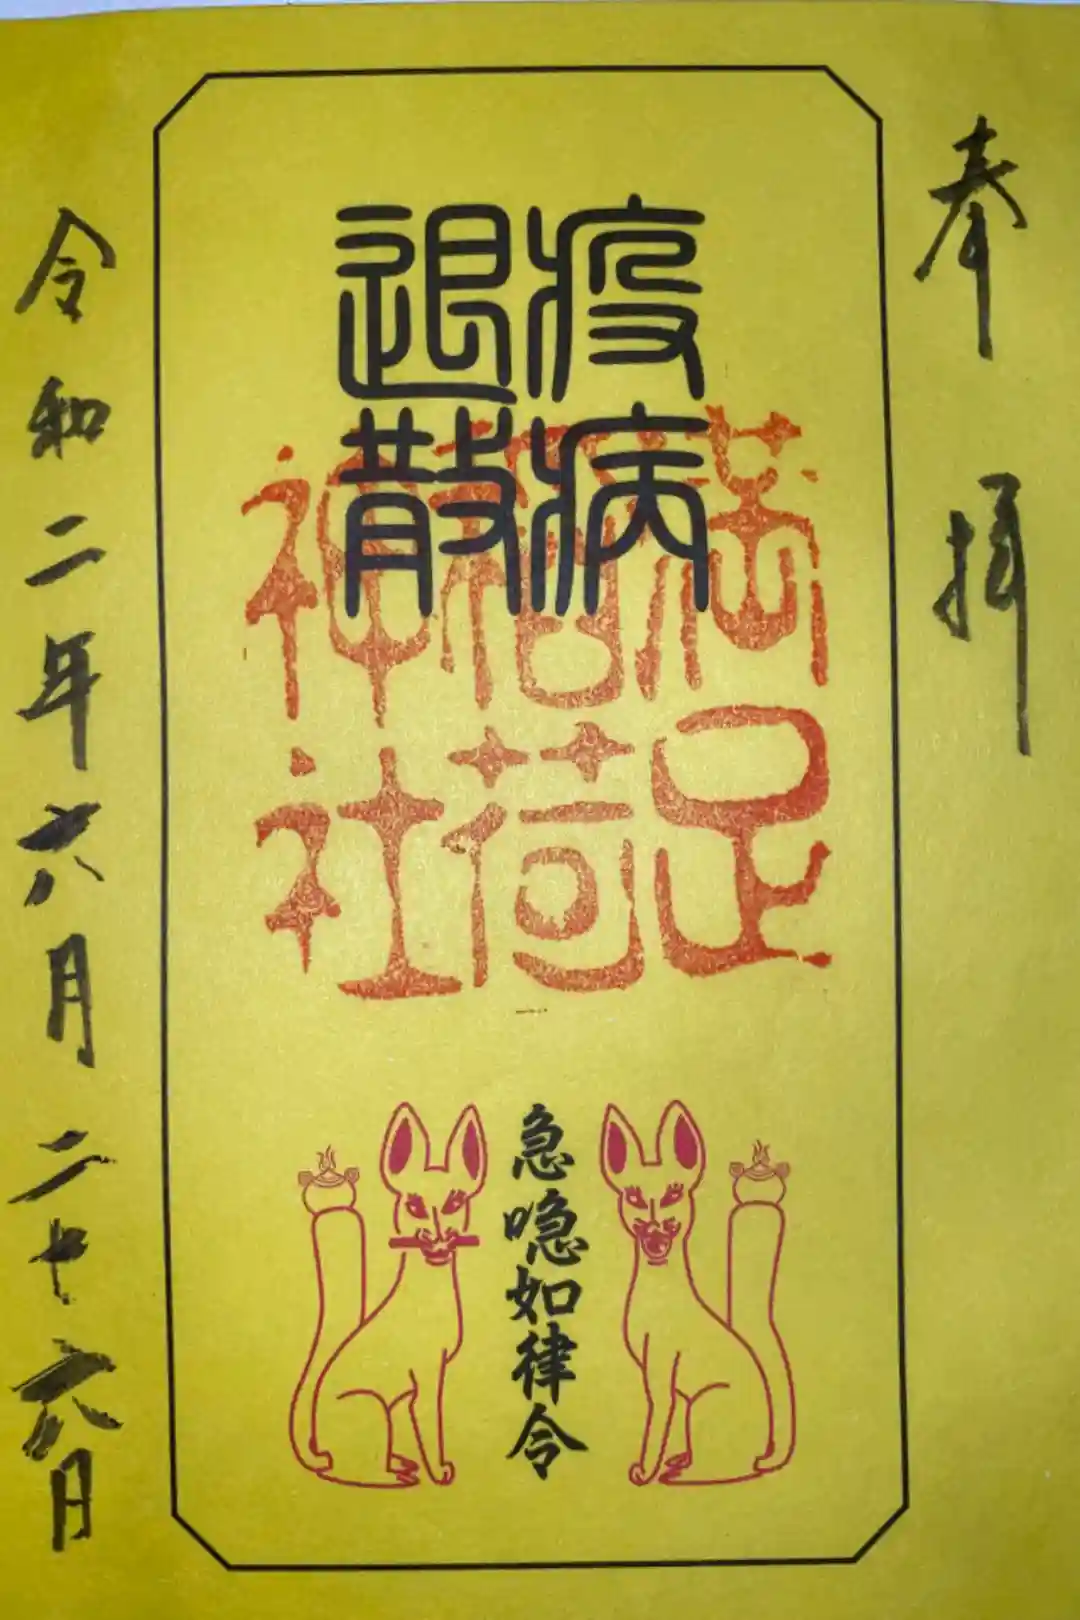 奉拝
疫病
退散
満足
稲荷
神社
急喼如律令
令和二年六月二十六日